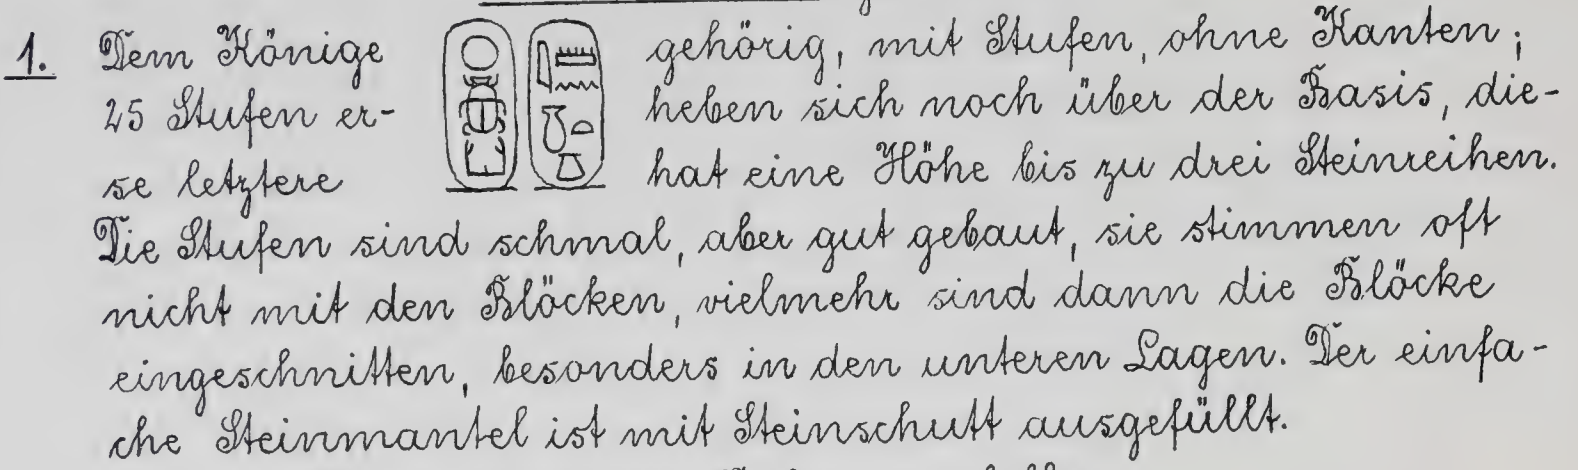 1. Dem Könige gehörig, mit Stufen, ohne Kanten;
25 Stufen er- heben sich noch über der Basis, die-
se letztere hat eine Höhe bis zu drei Steinreihen.
Die Stufen sind schmal, aber gut gebaut, sie stimmen oft
nicht mit den Blöcken, vielmehr sind dann die Blöcke
eingeschnitten, besonders in den unteren Lagen. Der einfa-
che Steinmantel ist mit Steinschutt ausgefüllt.